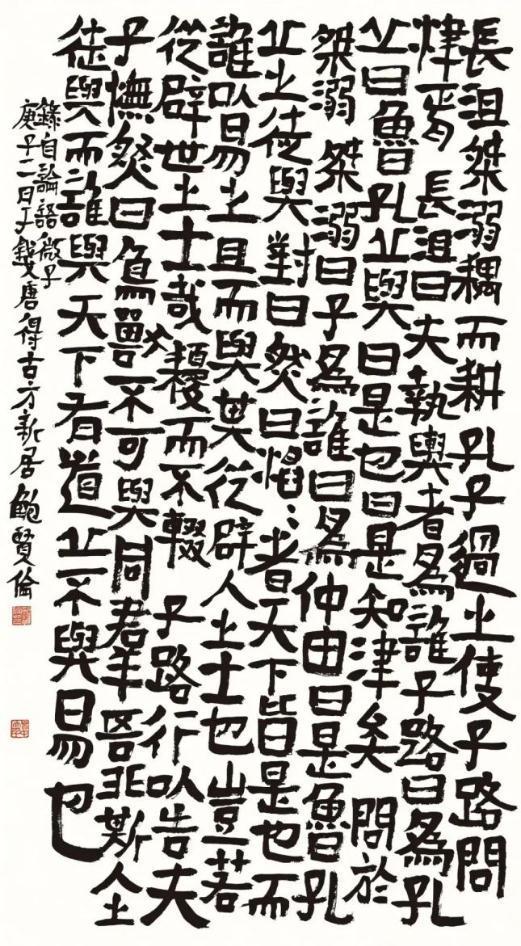 長沮桀溺耦而耕孔子過之使子路問
津焉 長沮曰夫執輿者為誰子路曰為孔
丘曰魯孔丘與曰是也曰是知津矣 問於
桀溺 桀溺曰子為誰曰為仲由曰是魯孔
丘之徒與 對曰然曰慆〻者天下皆是也而
誰以易之且而與其從辟人之士也豈若
從辟世之士哉耰而不輟 子路行以告夫
子憮然曰鳥獸不可與同群吾非斯人之
徒與而誰與天下有道丘不與易也
錄自論語微子
庚子二月于錢唐得古方新居鮑賢倫